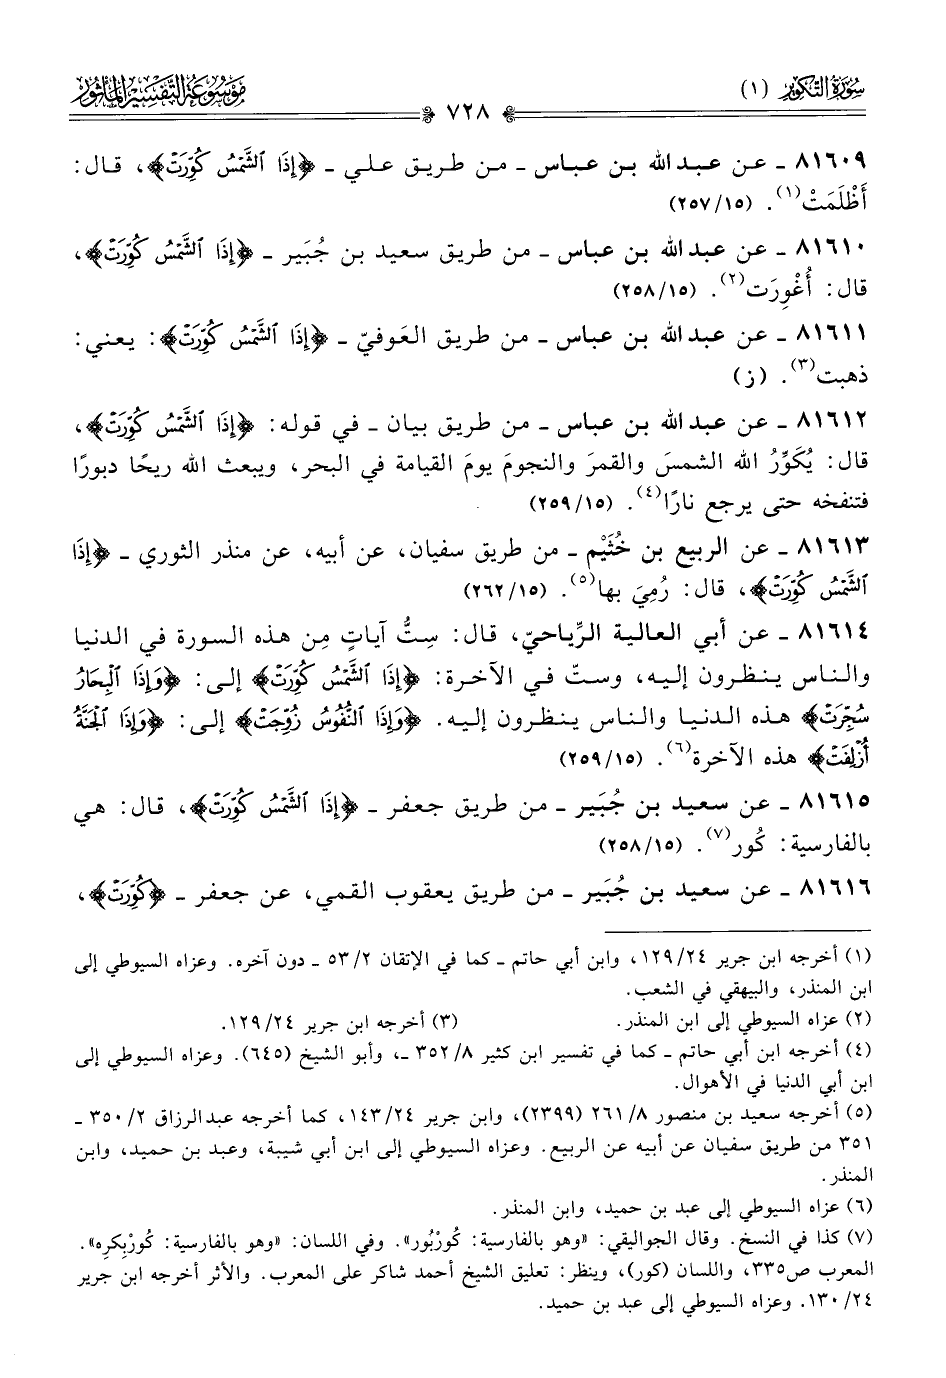 سورة التكوير (١)
٧٢٨
موسوعة التفسير المأثور
٨١٦٠٩ ـ عن عبد الله بن عباس ـ من طريق علي ـ ﴿إِذَا ٱلشَّمْسُ كُوِّرَتْ﴾، قال:
أَظْلَمَتْ(١). (٢٥٧/١٥)
٨١٦١٠ ـ عن عبد الله بن عباس ـ من طريق سعيد بن جُبَير ـ ﴿إِذَا ٱلشَّمْسُ كُوِّرَتْ﴾،
قال: أُغْوِرَت(٢). (٢٥٨/١٥)
٨١٦١١ ـ عن عبد الله بن عباس ـ من طريق العَوفيّ ـ ﴿إِذَا ٱلشَّمْسُ كُوِّرَتْ﴾: يعني:
ذهبت(٣). (ز)
٨١٦١٢ ـ عن عبد الله بن عباس ـ من طريق بيان ـ في قوله: ﴿إِذَا ٱلشَّمْسُ كُوِّرَتْ﴾،
قال: يُكَوِّرُ الله الشمسَ والقمرَ والنجومَ يومَ القيامة في البحر، ويبعث الله ريحًا دبورًا
فتنفخه حتى يرجع نارًا(٤). (٢٥٩/١٥)
٨١٦١٣ ـ عن الربيع بن خُثَيْم ـ من طريق سفيان، عن أبيه، عن منذر الثوري ـ ﴿إِذَا
ٱلشَّمْسُ كُوِّرَتْ﴾، قال: رُمِيَ بها(٥). (٢٦٢/١٥)
٨١٦١٤ ـ عن أبي العالية الرِّياحيّ، قال: سِتُّ آياتٍ مِن هذه السورة في الدنيا
والناس ينظرون إليه، وستّ في الآخرة: ﴿إِذَا ٱلشَّمْسُ كُوِّرَتْ﴾ إلى: ﴿وَإِذَا ٱلْبِحَارُ
سُجِّرَتْ﴾ هذه الدنيا والناس ينظرون إليه. ﴿وَإِذَا ٱلنُّفُوسُ زُوِّجَتْ﴾ إلى: ﴿وَإِذَا ٱلْجَنَّةُ
أُزْلِفَتْ﴾ هذه الآخرة(٦). (٢٥٩/١٥)
٨١٦١٥ ـ عن سعيد بن جُبَير ـ من طريق جعفر ـ ﴿إِذَا ٱلشَّمْسُ كُوِّرَتْ﴾، قال: هي
بالفارسية: كُور(٧). (٢٥٨/١٥)
٨١٦١٦ ـ عن سعيد بن جُبَير ـ من طريق يعقوب القمي، عن جعفر ـ ﴿كُوِّرَتْ﴾،
(١) أخرجه ابن جرير ٢٤/ ١٢٩، وابن أبي حاتم ـ كما في الإتقان ٢/ ٥٣ ـ دون آخره. وعزاه السيوطي إلى
ابن المنذر، والبيهقي في الشعب.
(٢) عزاه السيوطي إلى ابن المنذر. (٣) أخرجه ابن جرير ٢٤/ ١٢٩.
(٤) أخرجه ابن أبي حاتم ـ كما في تفسير ابن كثير ٨/ ٣٥٢ ـ، وأبو الشيخ (٦٤٥). وعزاه السيوطي إلى
ابن أبي الدنيا في الأهوال.
(٥) أخرجه سعيد بن منصور ٨/ ٢٦١ (٢٣٩٩)، وابن جرير ٢٤/ ١٤٣، كما أخرجه عبدالرزاق ٢/ ٣٥٠ ـ
٣٥١ من طريق سفيان عن أبيه عن الربيع. وعزاه السيوطي إلى ابن أبي شيبة، وعبد بن حميد، وابن
المنذر.
(٦) عزاه السيوطي إلى عبد بن حميد، وابن المنذر.
(٧) كذا في النسخ. وقال الجواليقي: «وهو بالفارسية: كُورْبُور». وفي اللسان: «وهو بالفارسية: كُورْبِكره».
المعرب ص٣٣٥، واللسان (كور)، وينظر: تعليق الشيخ أحمد شاكر على المعرب. والأثر أخرجه ابن جرير
٢٤/ ١٣٠. وعزاه السيوطي إلى عبد بن حميد.